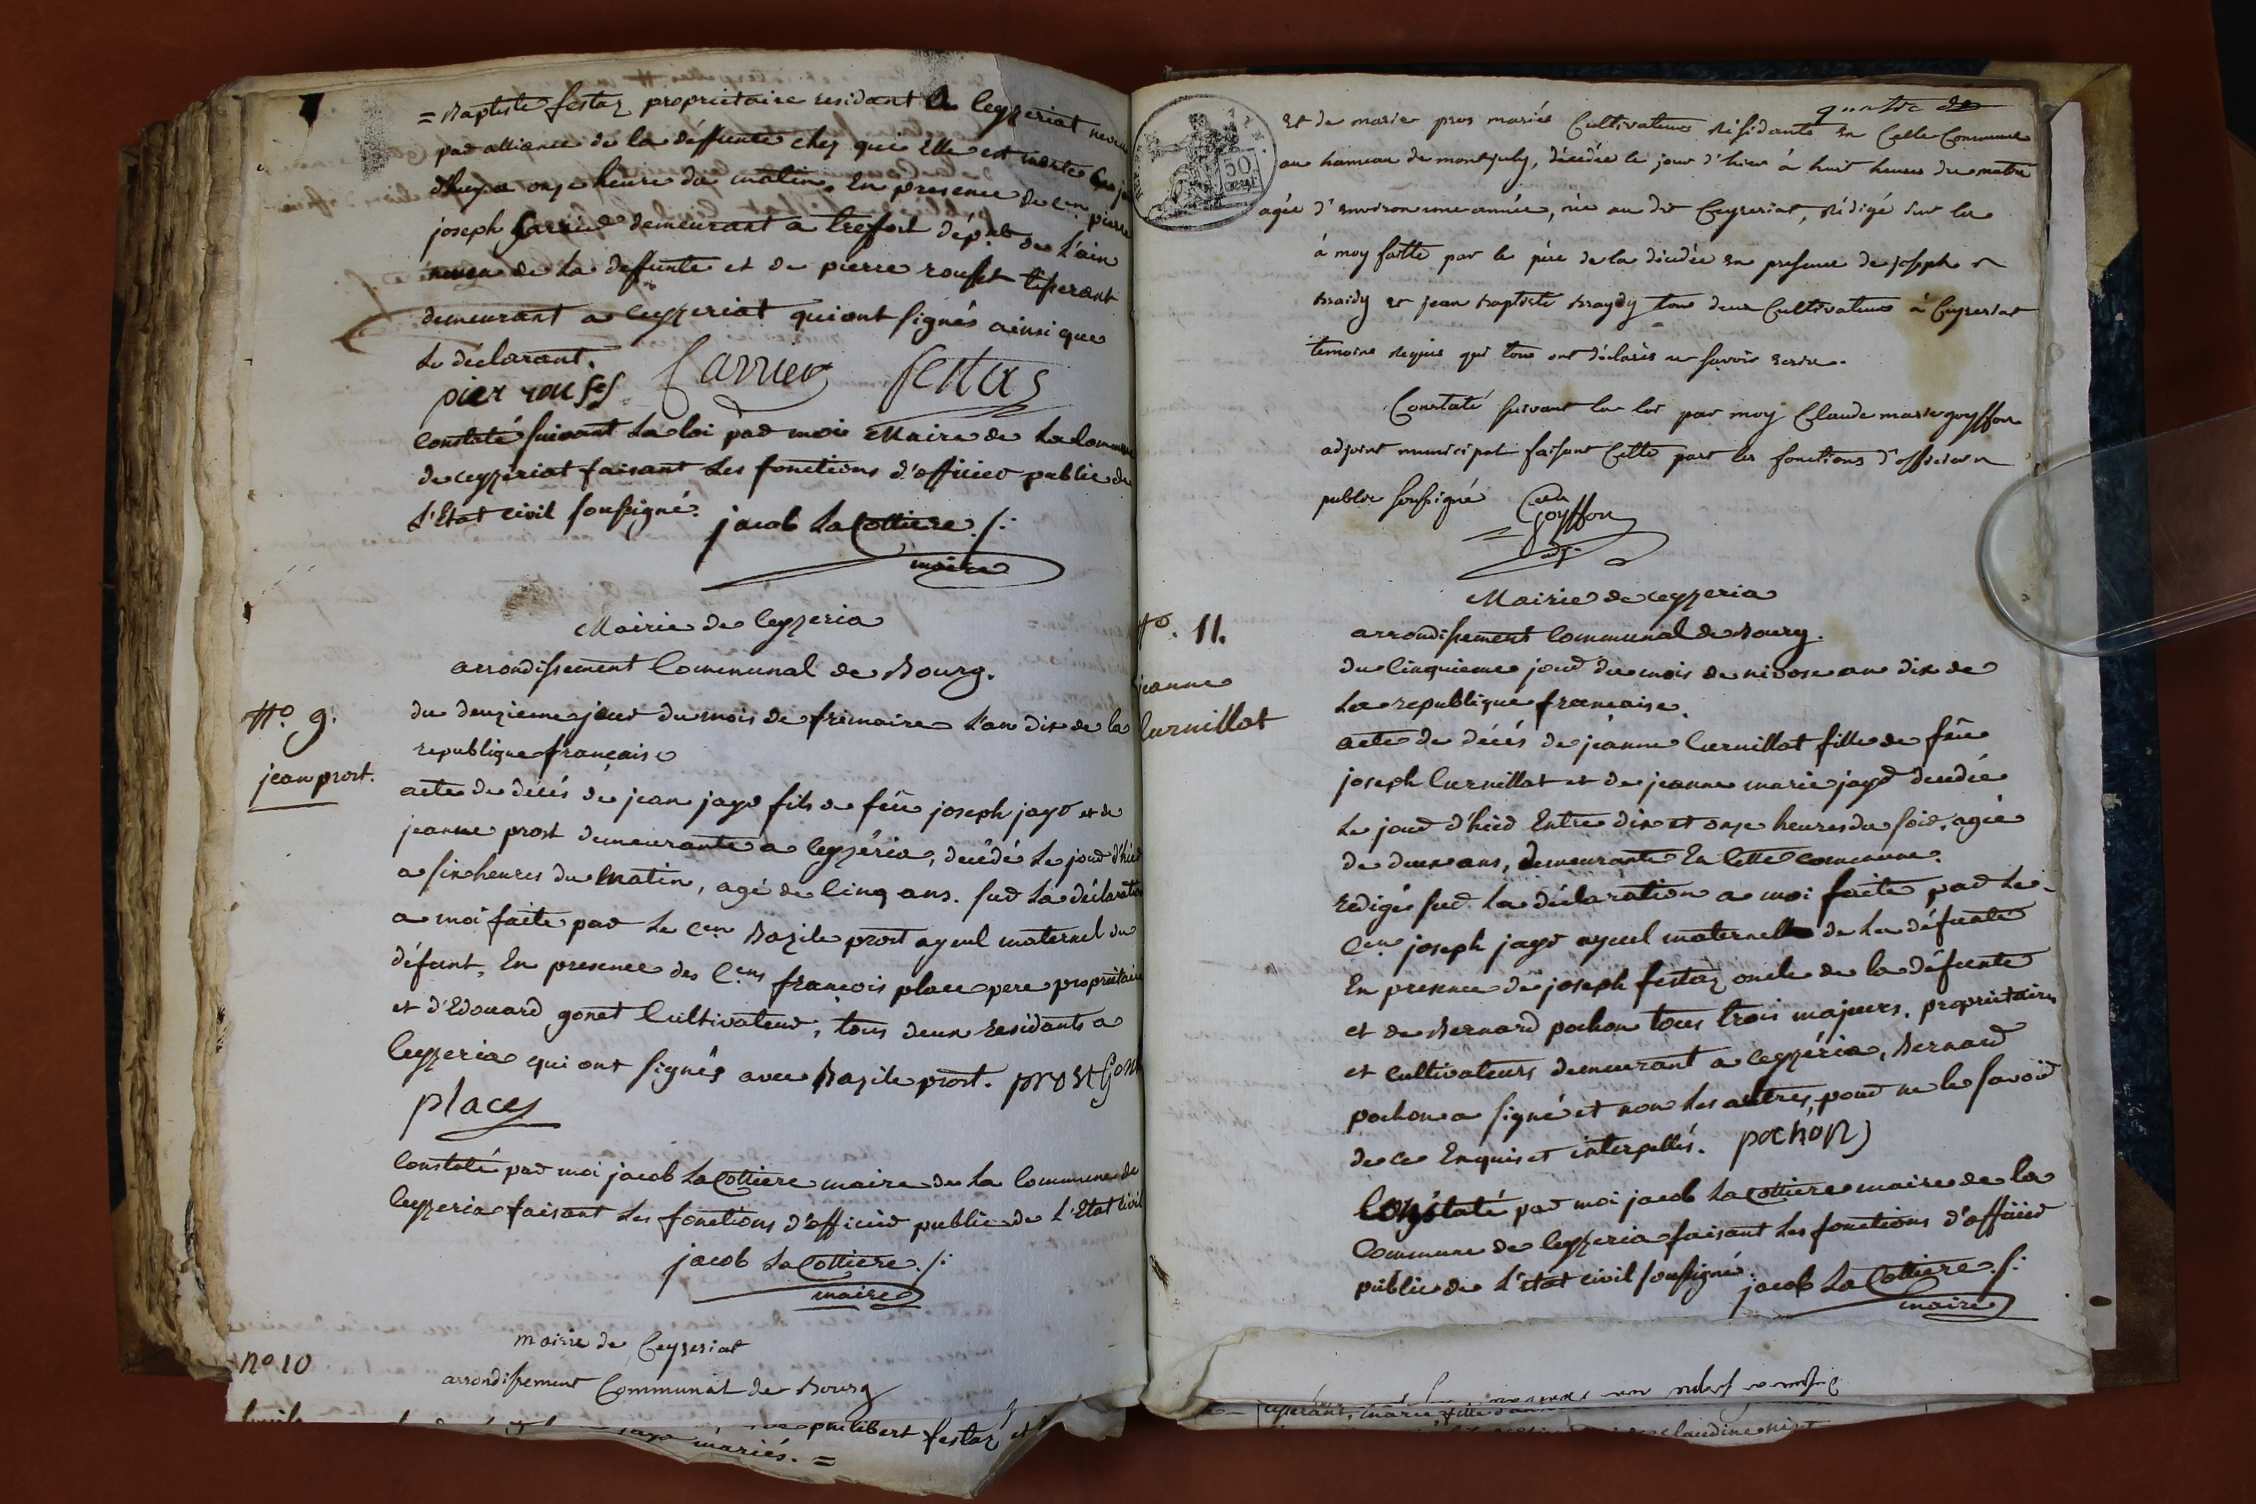 = Baptiste festaz proprietaire residant a Ceyzeriat neveu
par alliance de la deffunte chez qui Elle est morte
d'huy a onze heure du matin. En presence de Cen. pierre
joseph Carrier demeurant a treffort dépt. de L'ain
neveu de la deffunte et de pierre rousset tisserant
demeurant a Ceyzeriat qui ont signés ainsi que
Le déclarant.
Carrier festaz
Constaté suivant La loi par moi Maire de La Commune
de ceyzeriat faisant Les fonctions d'officier public de
L'Etat civil soussigné. jacob LaCottiere
maire
Mairie de Ceyzeria
arrondissement Communal de Bourg.
No. 9.
jean prost.
du deuzieme jour du mois de frimaire L'an dix de la
republique francaise
acte de décés de jean jayr fils de feu joseph jayr et de
jeanne prost demeurante a Ceyzéria, decédé Le jour d'hier
a six heures du Matin, agé de Cinq ans. Sur La déclaration
a moi faite par Le Cen Bazile prost ayeul maternel du
défunt, En presence des Cens françois place pere proprietaire
et d'Edouard gonet Cultivateur, tous deux residants a
Ceyzeria qui ont signés avec Bazile prost. prost Gonet
place
Constaté par moi jacob LaCottiere maire de La Commune de
Ceyzeria faisant Les fonctions d'officier public de L'Etat civil
jacob LaCottiere
maire
No 10
Mairie de Ceyzeriat
arrondissement Communal de Bourg
philibert festaz et
mariés. =
quatre
Et de marie pros mariés Cultivateurs Résidants en Cette Commune
au hameau de montjuly, décédée le jour d'hier à huit heures du matin
agée d'environ une année, née au dit Ceyzeriat, Rédigé sur la
à moy faitte par le père de la décédée en presence de joseph
Braidy et jean Baptiste Braydy tous deux Cultivateurs à Ceyzeriat
temoins Requis qui tous ont déclarés ne savoir ecrire.
Constaté suivant la loi par moy Claude marie goyffon
adjoint municipal faisant Cette part les fonctions d'officier
public soussigné Goyffon
adj.
50
Mairie de ceyzeria
No. 11.
jeanne
Curnillat
arrondissement Communal de Bourg.
du Cinquieme jour du mois de nivose an dix de
La republique francaise.
acte de décés de jeanne Curnillat fille de feu
joseph Curnillat et de jeanne marie jayr decedée
Le jour d'hier Entre dix et onze heures du soir, agée
de deux ans, demeurante En Cette commune.
Redigé sur La déclaration a moi faite par Le
Cen. joseph jayr ayeul maternel de La défunte
En presence de joseph festaz oncle de la défunte
et de Bernard pochon tous trois majeurs, proprietaires
et cultivateurs demeurant a ceyzéria, Bernard
pochon a signé et non Les autres, pour ne le savoir
de ce Enquis et interpellés. pochon
Constaté par moi jacob LaCottiere maire de la
Commune de Ceyzeria faisant Les fonctions d'officier
public de L'état civil soussigné. jacob LaCottiere
maire